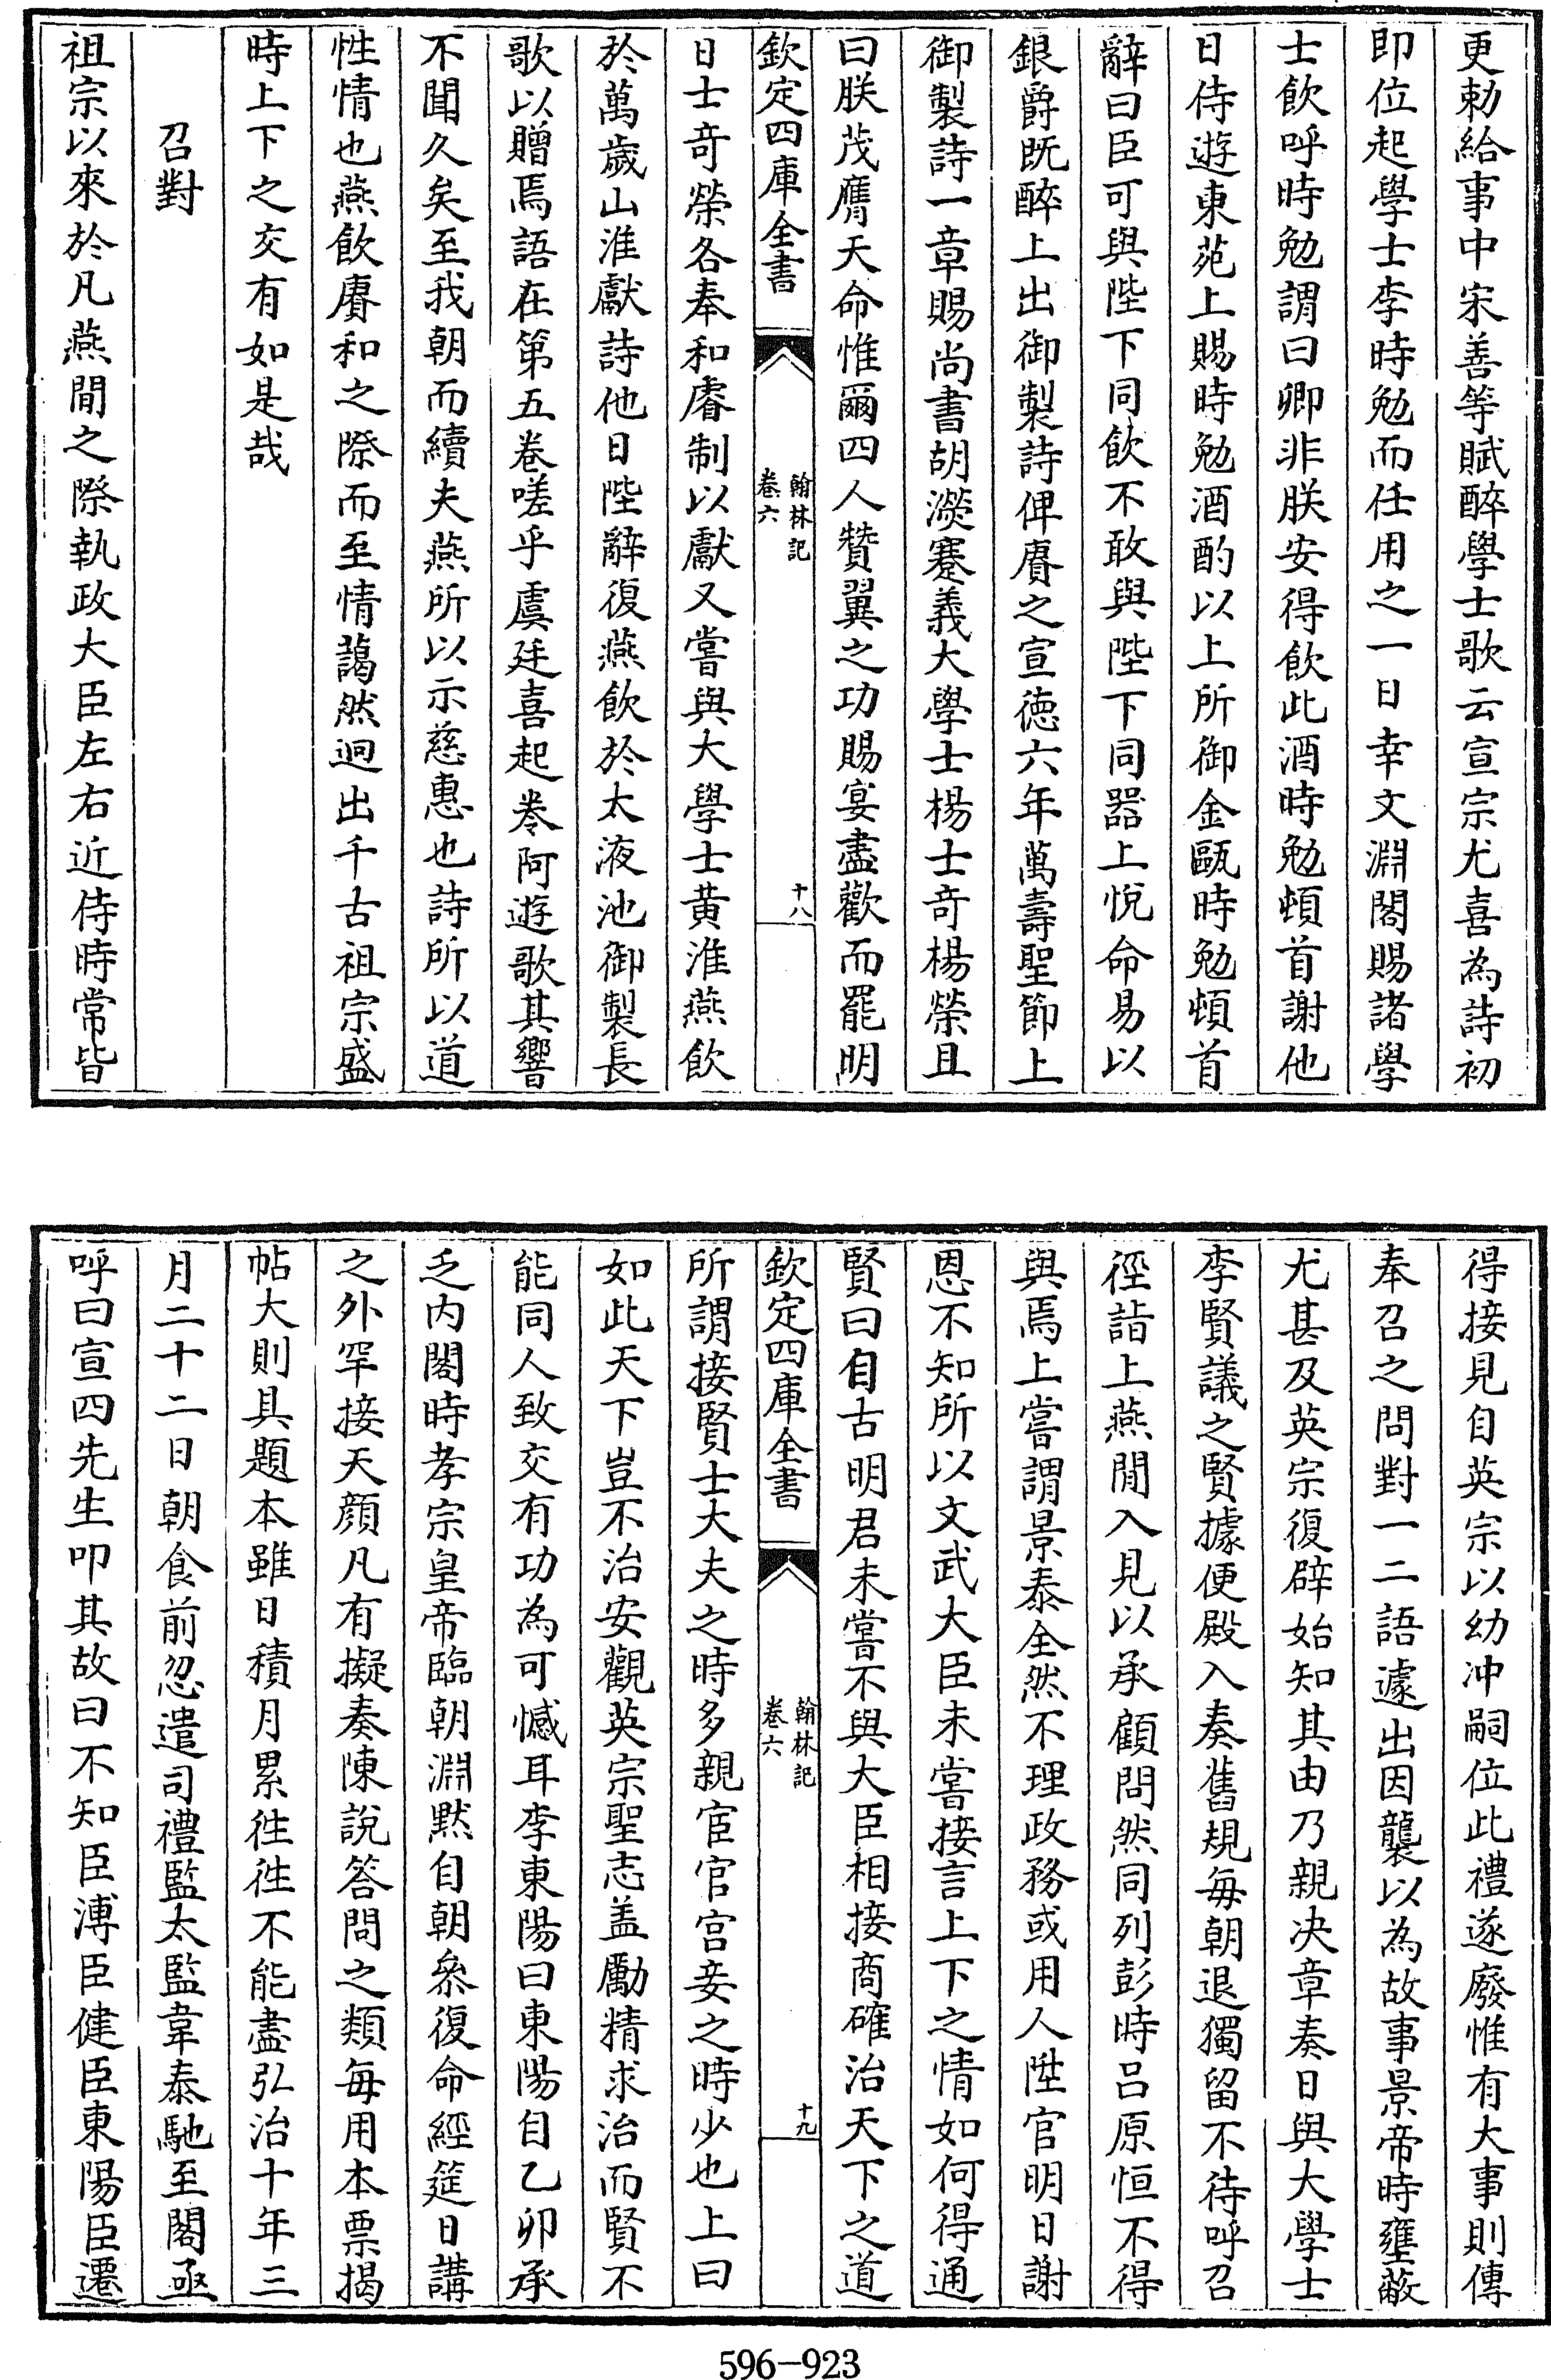 更勅給事中宋善等賦醉學士歌云宣宗尤喜為詩初
即位起學士李時勉而任用之一日幸文淵閣賜諸學
士飲呼時勉謂曰卿非朕安得飲此酒時勉頓首謝他
日侍遊東苑上賜時勉酒酌以上所御金甌時勉頓首
辭曰臣可與陛下同飲不敢與陛下同器上悅命易以
銀爵既醉上出御製詩俾賡之宣徳六年萬壽聖節上
御製詩一章賜尚書胡濙蹇義大學士楊士竒楊榮且
曰朕茂膺天命惟爾四人贊翼之功賜宴盡歡而罷明
欽定四庫全書
翰林記
卷六
十八
日士竒榮各奉和睿制以獻又嘗與大學士黄淮燕飲
於萬歲山淮獻詩他日陛辭復燕飲於太液池御製長
歌以贈焉語在第五卷嗟乎虞廷喜起卷阿遊歌其響
不聞久矣至我朝而續夫燕所以示慈惠也詩所以道
性情也燕飲賡和之際而至情藹然迥出千古祖宗盛
時上下之交有如是哉
召對
祖宗以來於凡燕閒之際執政大臣左右近侍時常皆
得接見自英宗以幼冲嗣位此禮遂廢惟有大事則傳
奉召之問對一二語遽出因襲以為故事景帝時壅蔽
尤甚及英宗復辟始知其由乃親決章奏日與大學士
李賢議之賢據便殿入奏舊規每朝退獨留不待呼召
徑詣上燕閒入見以承顧問然同列彭時呂原恒不得
與焉上嘗謂景泰全然不理政務或用人陞官明日謝
恩不知所以文武大臣未嘗接言上下之情如何得通
賢曰自古明君未嘗不與大臣相接商確治天下之道
欽定四庫全書
翰林記
卷六
十九
所謂接賢士大夫之時多親宦官宫妾之時少也上曰
如此天下豈不治安觀英宗聖志盖勵精求治而賢不
能同人致交有功為可憾耳李東陽曰東陽自乙卯承
乏内閣時孝宗皇帝臨朝淵默自朝叅復命經筵日講
之外罕接天顔凡有擬奏陳說答問之類每用本票揭
帖大則具題本雖日積月累徃徃不能盡弘治十年三
月二十二日朝食前忽遣司禮監太監韋泰馳至閣亟
呼曰宣四先生叩其故曰不知臣溥臣健臣東陽臣遷
596-923